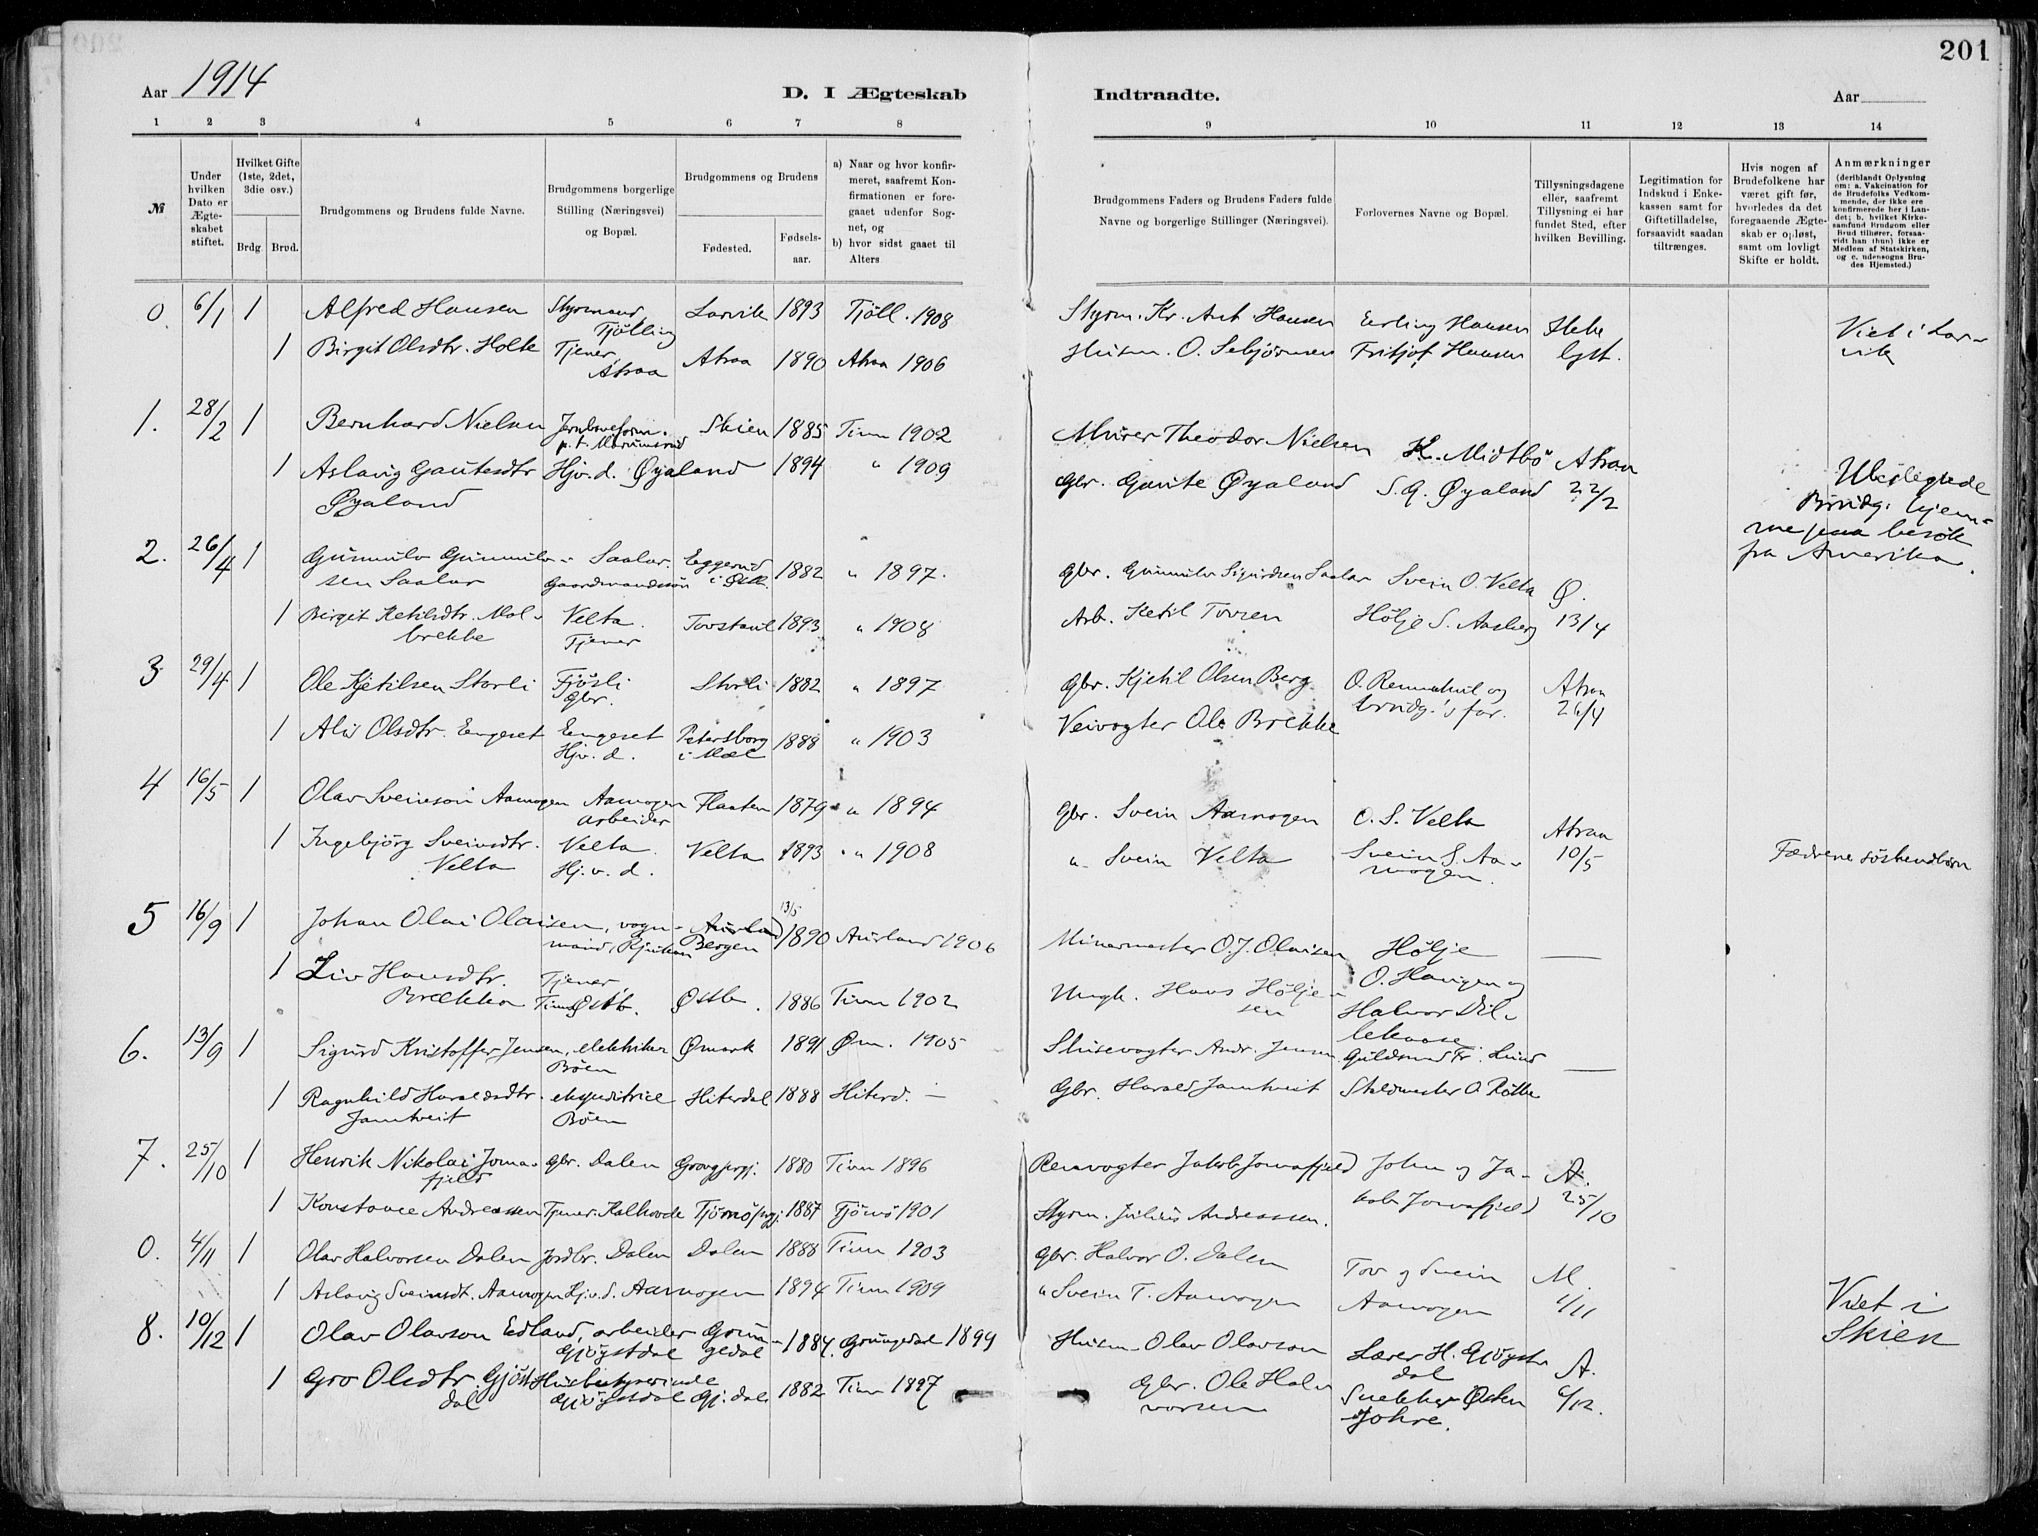 201
Aar 1914
D. I Ægteskab
Indtraadte.
Aar
1 2 3 4 5 6 7 8
9 10 11 12 13 14
№
Under hvilken Dato er Ægteskabet stiftet.
Hvilket Gifte (1ste, 2det, 3die osv.)
Brdg. Brud.
Brudgommens og Brudens fulde Navne.
Brudgommens borgerlige Stilling (Næringsvei) og Bopæl.
Brudgommens og Brudens
Fødested.
Fødselsaar.
a) Naar og hvor konfirmeret, saafremt Konfirmationen er foregaaet udenfor Sognet, og
b) hvor sidst gaaet til Alters
Brudgommens Faders og Brudens Faders fulde Navne og borgerlige Stillinger (Næringsvei).
Forlovernes Navne og Bopæl.
Tillysningsdagene eller, saafremt Tillysning ei har fundet Sted, efter hvilken Bevilling.
Legitimation for Indskud i Enkekassen samt for Giftetilladelse, forsaavidt saadan tiltrænges.
Hvis nogen af Brudefolkene har været gift før, hvorledes da det foregaaende Ægteskab er opløst, samt om lovligt Skifte er holdt.
Anmærkninger (deriblandt Oplysning om: a. Vakcination for de Brudefolks Vedkommende, der ikke ere konfirmerede her i Landet; b. hvilket Kirkesamfund Brudgom eller Brud tilhører, forsaavidt han (hun) ikke er Medlem af Statskirken, og c. udensogns Brudes Hjemsted.)
0. 6/1 1 Alfred Hansen Styrmand Tjölling Larvik 1893 Tjöll. 1908 Styrm. Kr. Ant. Hansen Erling Hansen Viet i Larvik
1 Birgit Olsdtr. Holte Tjener, Atraa Atraa 1890 Atraa 1906 Husm. O. Fritjof Hansen lyst.
1. 28/2 1 Bernhard Nielsen p.t. Skien 1885 Tinn 1902 Murer Theodor Nielsen K. Midtbö Atraa 22/2
1 Aslaug Gautesdtr Øyaland Hjv. d. Øyaland 1894 " 1909 Gbr. Gaute Øyaland S. G. Øyaland
Brudg. hjemme paa besök fra Amerika.
2. 26/4 1 Gunnulv Gunnulvsen Saalar Saalar. Gaardmandssön Eggerud i 1882 " 1897. Gbr. Gunnulv Sigurdsen Saalar Svein O. Velta Ø. 13/4
1 Birgit Ketilsdtr. Molbrekke Velta. Tjener Tovstaul 1893 " 1908 Arb. Ketil Tovsen Hölje S. Aasberg
3. 29/4 1 Ole Kjetilsen Storli Fjösli Gbr. Storli 1882 " 1897 Gbr. Kjetil Olsen Berg O. og brudg.'s far. Atraa 26/4
1 Olsdtr. Engeset Engeset Hjv. d. Petersborg i Mæl 1888 " 1903 Veivogter Ole Brekke
4 16/5 1 Olav Sveinson Aamogen Aamogen arbeider Flaaten 1879 " 1894 Gbr. Svein Aamogen O. S. Velta Atraa 10/5
1 Ingebjörg Sveinsdtr. Velta Velta. Hj. v. d. Velta 1893 " 1908 " Svein Velta Svein S. Aamogen. Fædrene söskendbarn
5 16/9 1 Johan Olai Olaisen, vognmand, Rjukan Aurland Bergen 13/5 1890 Aurland 1906 Minormester O. J. Olaisen Hölje O. Haugen og —
1 Liv Hansdtr. Brekka Tjener Østb. Østb. 1886 Tinn 1902 Ungk. Hans Höljesen Halvor
6. 13/9 1 Sigurd Kristoffer Jensen, elektriker Böen Ømark 1891 Øm. 1905 Slusevogter Andr. Jensen Guldsmed Fr. Lund —
1 Ragnhild Haraldsdtr. Jamtveit ekspeditrice Böen Hiterdal 1888 Hiterd. — Gbr. Harald Jamtveit
7. 25/10 1 Henrik Nikolai Jomafjeld Gbr. Dalen 1880 Tinn 1896 Jakob Jomafjeld John og Jakob Jomafjeld A. 25/10
1 Konstance Andreassen Tjener Kalhovde Tjömö 1887 Tjömö 1901 Styrm. Julius Andreassen.
0. 4/11 1 Olav Halvorsen Dalen Jordbr. Dalen Dalen 1888 Tinn 1903 Gbr. Halvor O. Dalen Tov og Svein Aamogen M. 1/11 Viet i Skien
1 Aslaug Sveinsdt. Aamogen Hjv. d. Aamogen 1894 Tinn 1909 " Svein T. Aamogen
8. 10/12 1 Olav Olavson Edland, arbeider Gjöystdal Grungedal 1884. Grungedal 1899 Husm. Olav Olavson Lærer H. Gjöystdal A. 6/12.
1 Gro Olsdtr. Gjöistdal Husbestyrerinde Gjöystdal Gj.dal 1882 Tinn 1897 Gbr. Ole Halvorsen Snekker Østen Johre.